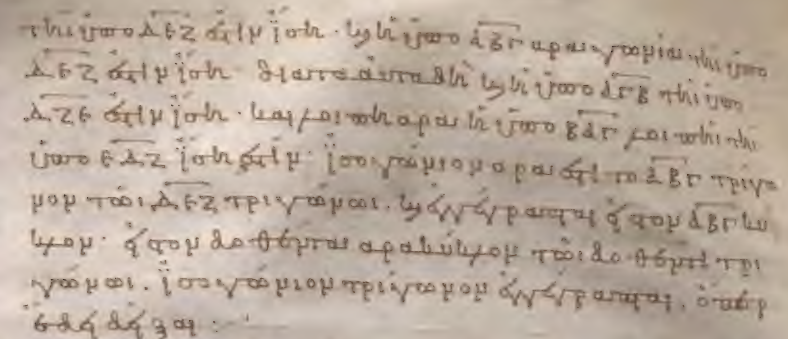 τῆι ὑπὸ ΔΕΖ ἐστὶν ἴση · καὶ ἡ ὑπὸ ΑΒΓ ἄρα γωνία τῆι ὑπὸ
ΔΕΖ ἐστὶν ἴση · διὰ τὰ αὐτὰ δὴ καὶ ἡ ὑπὸ ΑΓΒ τῆι ὑπὸ
ΔΖΕ ἐστὶν ἴση · καὶ λοιπὴ ἄρα ἡ ὑπὸ ΒΑΓ λοιπῆι τῆι
ὑπὸ ΕΔΖ ἴση ἐστίν · ἰσογώνιον ἄρα ἐστὶ τὸ ΑΒΓ τρίγω
νον τῶι ΔΕΖ τριγώνωι · καὶ ἐγγέγραπται εἰς τὸν ΑΒΓ κύ
κλον · εἰς τὸν δοθέντα ἄρα κύκλον τῶι δοθέντι τρι
γώνωι · ἰσογώνιον τρίγωνον ἐγγέγραπται · ὅπερ
ἔδει δεῖξαι :